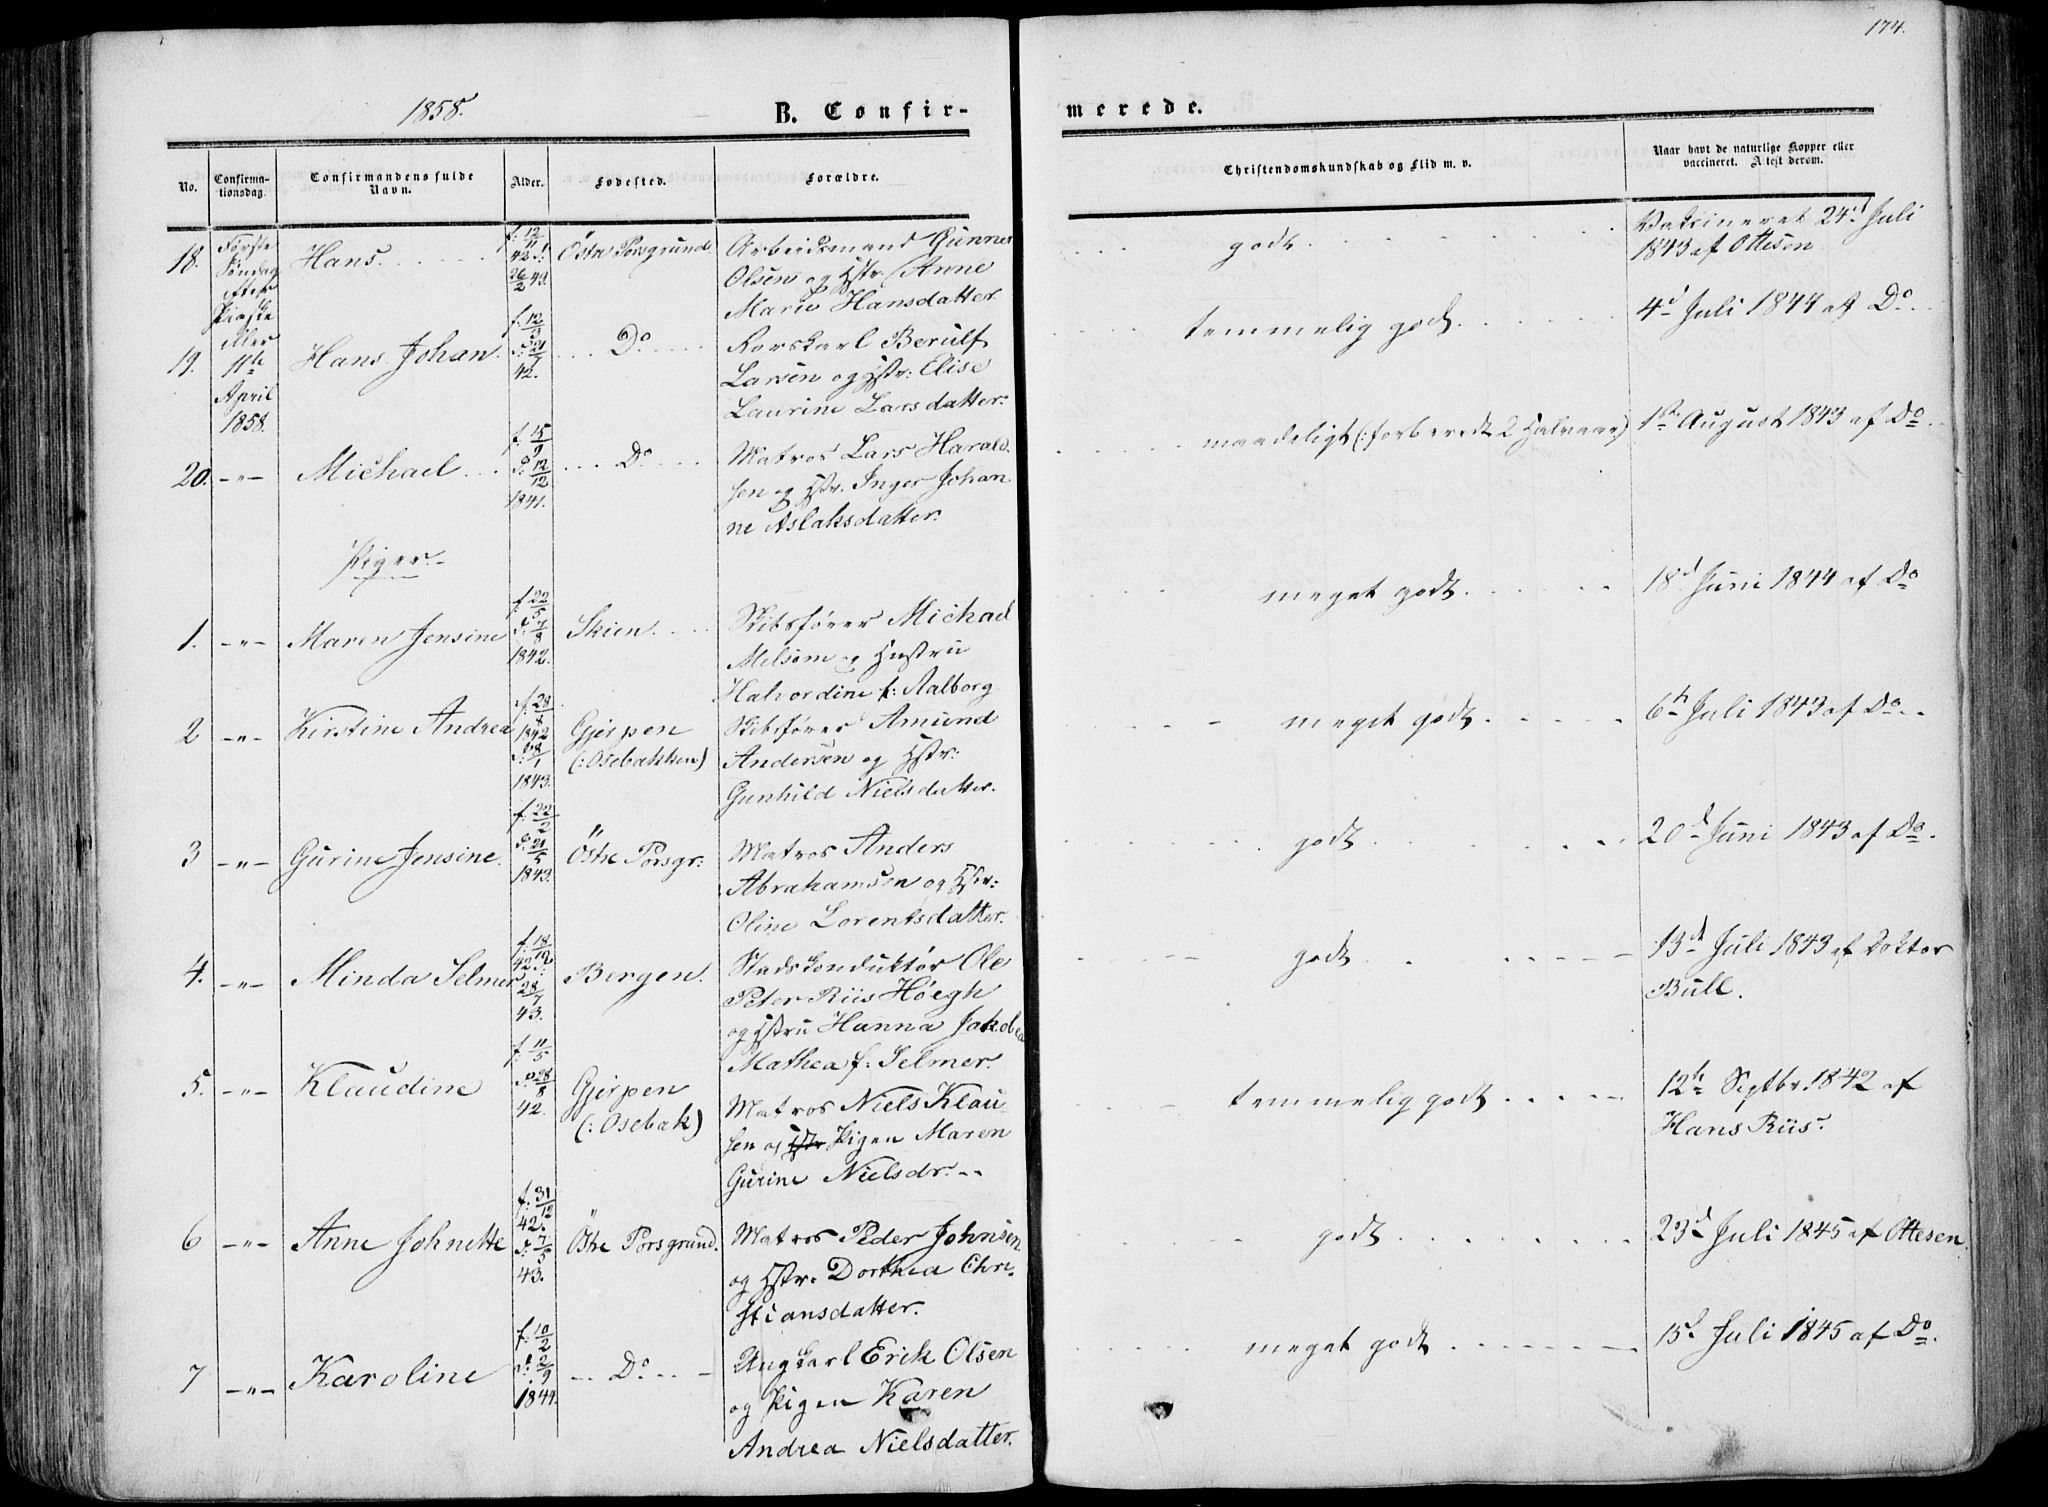 174.
1858.
B. Confir-
merede.
No.
Confirma-
tionsdag.
Confirmandens fulde
Navn.
Alder.
Fødested.
Forældre.
Christendomskundskab og Flid m. v.
Naar havt de naturlige Kopper eller
vaccineret. Attest derom.
18.
Første
Søndag
efter
Paaske
eller
11te
April
1858.
Hans
f: 12/11
42 d:
26/2 43.
Östre Porsgrund.
Arbeidsmand Gunner
Olsen og Hstr. Anne
Marie Hansdatter
godt
Vaksineret 24d Juli
1843 af Ottesen
19.
Hans Johan
f: 12/3
d: 21/7
42.
Do
Korskarl Berulf
Larsen og Hstr: Elise
Laurine Larsdatter.
temmelig godt
4d Juli 1844 af Do
20. -"-
Michael
f. 15/9
d: 12/12
1841.
Do
Matros Lars Harald-
sen og Hstr. Inger Johan
ne Aslaksdatter.
maadeligt (: forberedt 2 Halvaar)
1ste August 1843 af Do
Piger.
1. -"-
Maren Jensine
f. 22/5
d: 7/8
1842.
Skien
Skibsfører Michael
Melsom og Hustru
Halvordine f: Aalborg
meget godt
18d Juni 1844 af Do
2 -"-
Kirstine Andrea
f: 29/8
1842
d: 8/1
1843.
Gjerpen
(: Osebakken)
Skibsfører Amund
Andersen og Hstr:
Gunhild Nielsdatter.
meget godt
6te Juli 1843 af Do
3 -"-
Gurine Jensine.
f. 22/2
d: 21/5
1843.
Östre Porsgr:
Matros Anders
Abrahamsen og Hstr:
Oline Lorentsdatter.
godt
20d Juni 1843 af Do.
4. -"-
Minda Selmer
f. 18/12
42 d:
28/7
43.
Bergen.
Stadskonduktör Ole
Peter Riis Höegh
og Hstru Hanna Jakobea
Mathea f: Selmer.
godt
13d Juli 1843 af Doktor
Bull.
5. -"-
Klaudine
f: 11/5
d: 28/8
42.
Gjerpen
(: Osebak)
Matros Niels Klau-
sen og Hstr Pigen Maren
Gurine Nielsdr.
temmelig godt
12te Septbr. 1842 af
Hans Riis.
6 -"-
Anne Johnette
f. 31/12
42.
d: 7/5
43.
Östre Porsgrund.
Matros Peder Johnsen
og Hstr: Dorthea Chri-
stiansdatter.
godt
23d Juli 1845 af Ottesen
7 -"-
Karoline
f. 10/2
d: 2/9
1844.
Do
Ungkarl Erik Olsen
og Pigen Karen
Andrea Nielsdatter.
meget godt
15d Juli 1845 af Do.